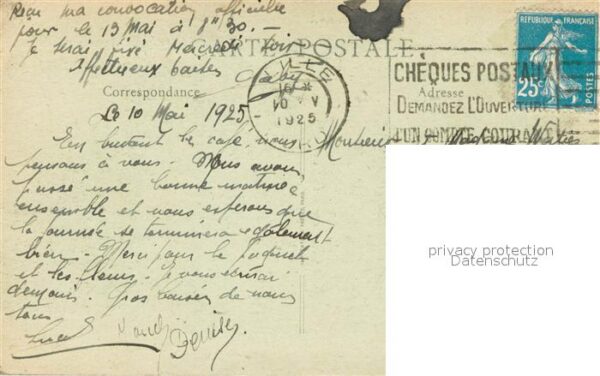 Reçu ma convocation officielle
pour le 13 Mai à 8h 30.-
Je serai fixé Mercredi soir
Affectueux baisers
CARTE POSTALE
Correspondance
Le 10 Mai 1925
En buvant le café, nous
pensons à vous. Nous avons
passé une bonne matinée
ensemble et nous espérons que
la journée se terminera également
bien. Merci pour le paquet
et les fleurs. Je vous écrirai
demain. Gros baisers de nous
tous
Denise
LILLE
10 - V
1925
CHÈQUES POSTAUX
Adresse
DEMANDEZ L'OUVERTURE
D'UN COMPTE COURANT
RÉPUBLIQUE FRANÇAISE
25c
POSTES
Monsieur
privacy protection
Datenschutz